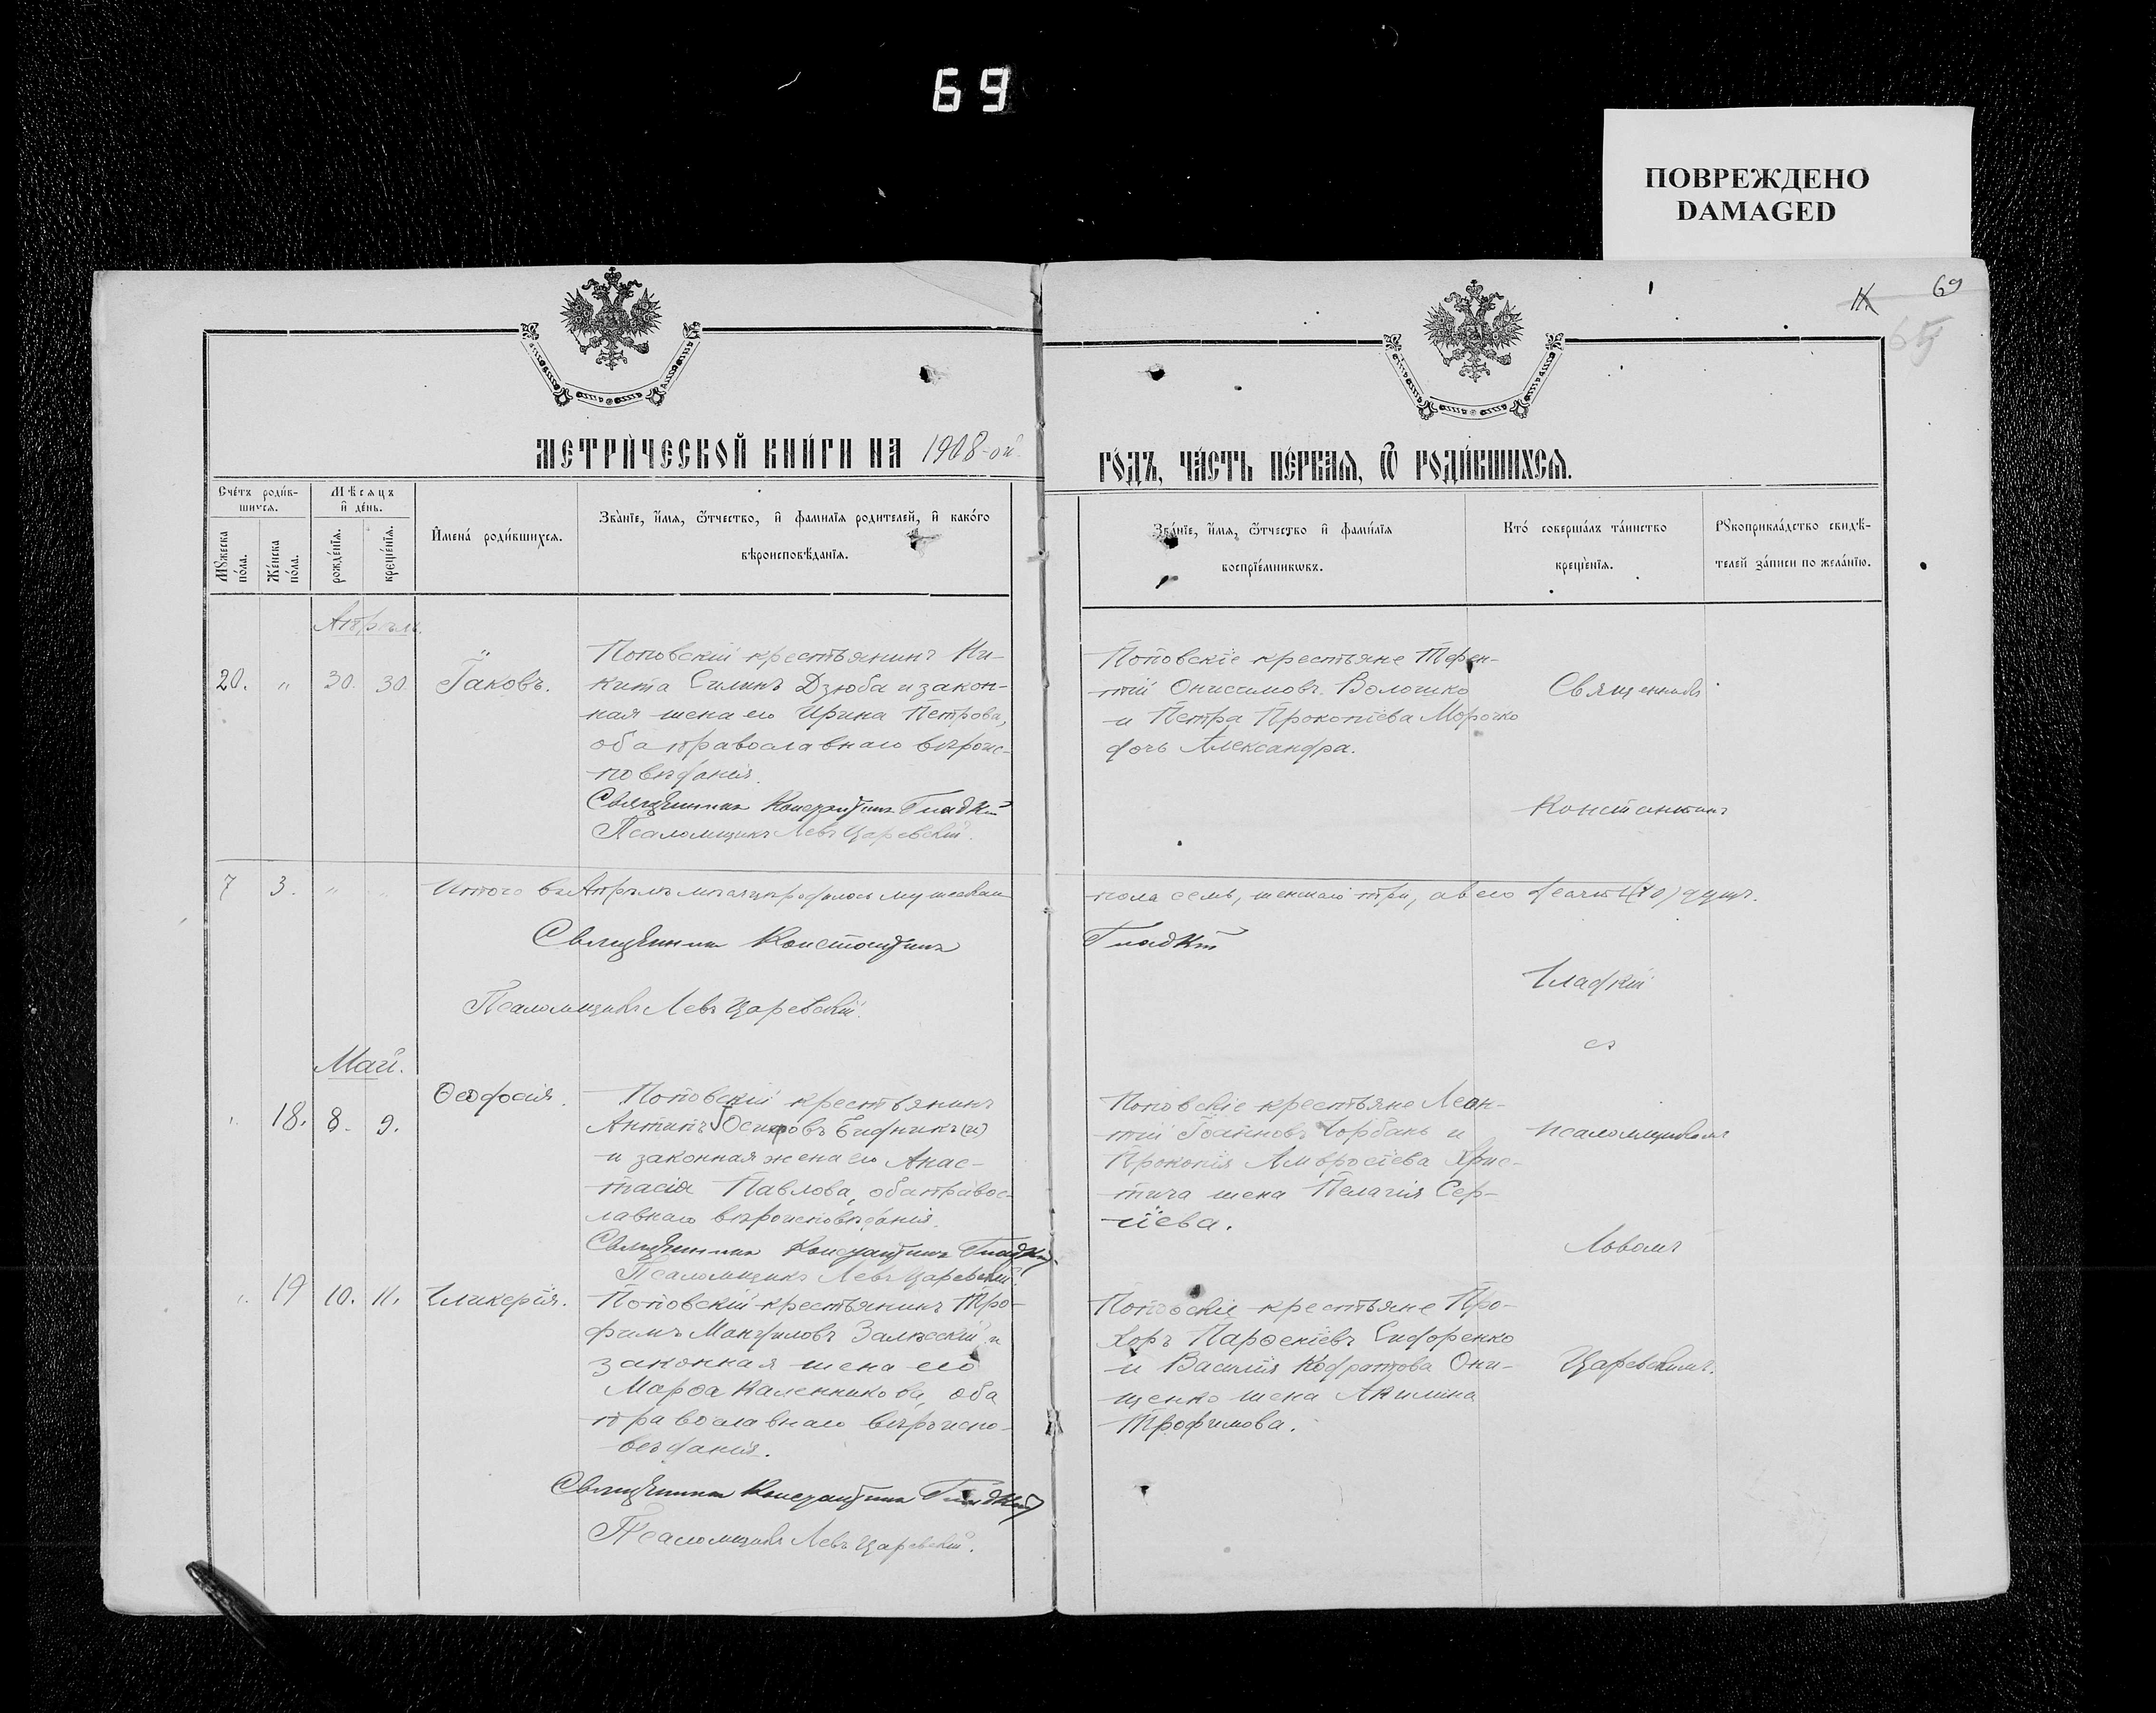 69
ПОВРЕЖДЕНО
DAMAGED
69
МЕТРИ́ЧЕСКОЙ КНИ́ГИ НА 1908-ой
ГО́ДЪ, ЧА́СТЬ ПЕ́РВАЯ, Ѿ РОДИ́ВШИХСЯ.
Сче́тъ роди́в-
шихся.
Мѣсяцъ
и҆ де́нь.
Мꙋжеска
по́ла.
Же́нска
по́ла.
рожде́нїя.
креще́нїя.
И҆мена̀ роди́вшихся.
Зва́нїе, и҆́мя, ѻ҆́тчество, и҆ фами́лїя роди́телей, и҆ како́гѡ
вѣроисповѣ́данїя.
Зва́нїе, и҆́мя, ѻ҆́тчество и҆ фами́лїя
воспрїе́мникѡвъ.
Кто́ соверша́лъ та́инство
креще́нїя.
Рꙋкоприкла́дство свидѣ́-
телей за́писи по жела́нїю.
Апрѣль.
20. " 30. 30. Іаковъ.
Поповскій крестьянинъ Ни-
кита Силинъ Дзюба и закон-
ная жена его Ирина Петрова,
оба православнаго вѣроис-
повѣданія.
Священникъ Константинъ Гладкій
Псаломщикъ Левъ Царевскій.
Поповскіе крестьяне Терен-
тій Онисимовъ Волошко
и Петра Прокопіева Морочко
дочь Александра.
Священникъ
Константинъ
7 3. " " Итого въ Апрѣлѣ мѣсяцѣ родилось мужескаго
пола семь, женскаго три, а всего десять (10) душъ.
Священникъ Константинъ Гладкій
Гладкій
Псаломщикъ Левъ Царевскій.
съ
Май.
" 18. 8. 9. Ѳеодосія.
Поповскій крестьянинъ
Антипъ Осиповъ Бидникъ(и)
и законная жена его Анас-
тасія Павлова, оба правос-
лавнаго вѣроисповѣданія.
Священникъ Константинъ Гладкій
Псаломщикъ Левъ Царевскій.
Поповскіе крестьяне Леон-
тій Іоанновъ Горбань и
Прокопія Амвросіева Хрис-
тича жена Пелагія Сер-
гіева.
псаломщикомъ
Львомъ
" 19 10. 11. Гликерія.
Поповскій крестьянинъ Тро-
фимъ Мануиловъ Залѣсскій и
законная жена его
Марѳа Каленикова, оба
православнаго вѣроиспо-
вѣданія.
Священникъ Константинъ Гладкій
Псаломщикъ Левъ Царевскій.
Поповскіе крестьяне Про-
хоръ Парѳеніевъ Сидоренко
и Василія Кодратова Они-
щенко жена Акилина
Трофимова.
Царевскимъ.